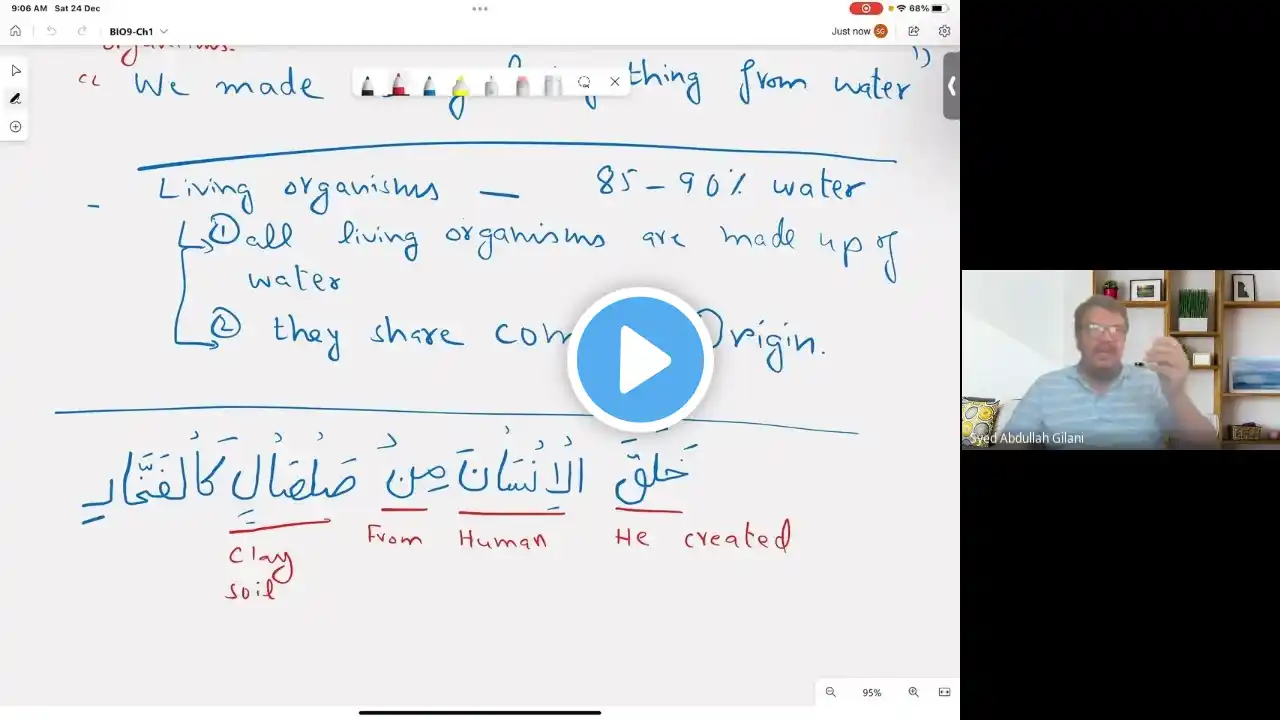 9:06 AM Sat 24 Dec
68%
BIO9-Ch1
Just now SG
organisms.
" We made thing from water "
Living organisms — 85-90% water
① all living organisms are made up of
water
② they share com Origin.
خَلَقَ الْإِنْسَانَ مِنْ صَلْصَالٍ كَالْفَخَّارِ
He created
Human
From
Clay
soil
Syed Abdullah Gilani
95%